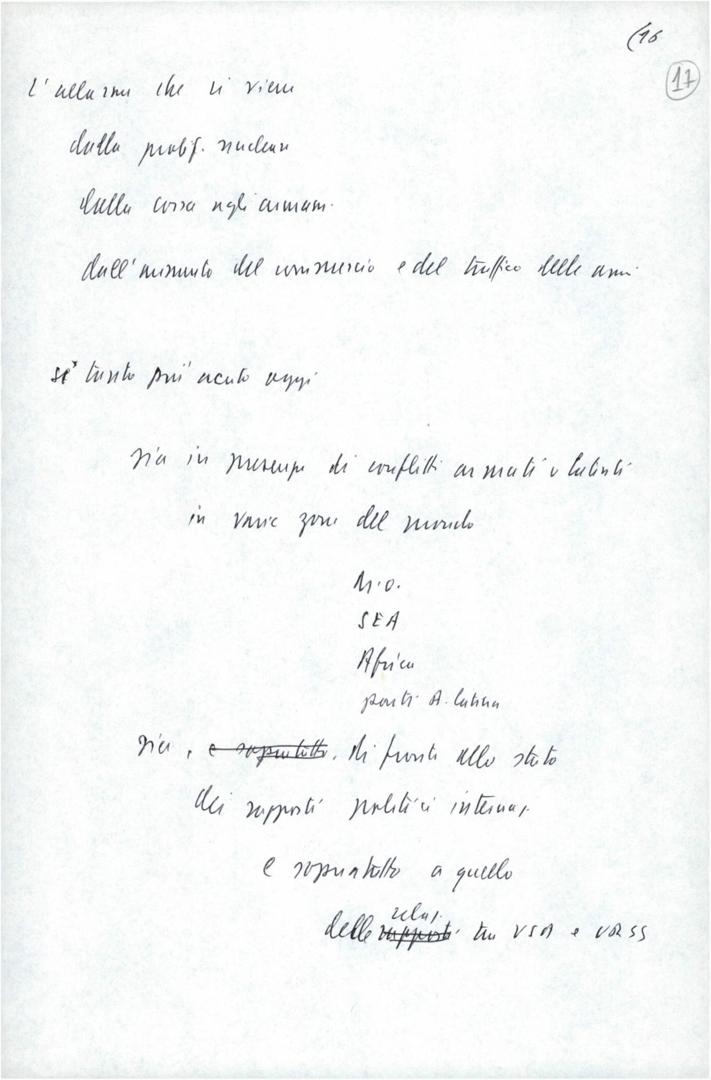 (16
17
L'allarme che ci viene
dalla prolif. nucleare
dalla corsa agli armam.
dall'aumento del commercio e del traffico delle armi
è tanto più acuto oggi
sia in presenza di conflitti armati o latenti
in varie zone del mondo
M.O.
SEA
Africa
A. latina
sia, e soprattutto, di fronte allo stato
dei rapporti politici internaz.
e soprattutto a quello
relaz.
delle rapporti tra USA e URSS